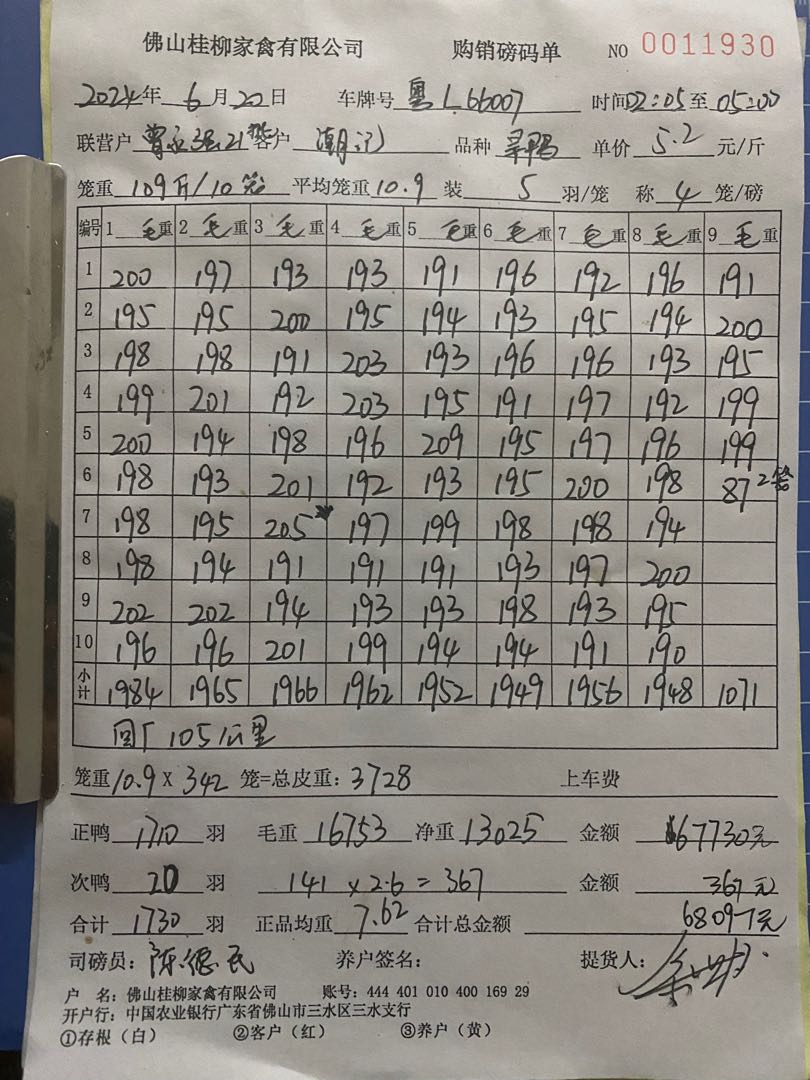 佛山桂柳家禽有限公司 购销磅码单 NO 0011930
2024年 6月20日 车牌号 粤L66007 时间02:05至05:00
联营户 曾 强21 客户 潮记 品种 单价 5.2 元/斤
笼重 109斤/10笼 平均笼重10.9 装 5 羽/笼 称 4 笼/磅
编号 1 毛重 2 毛重 3 毛重 4 毛重 5 毛重 6 毛重 7 毛重 8 毛重 9 毛重
1 200 197 193 193 191 196 192 196 191
2 195 195 200 195 194 193 195 194 200
3 198 198 191 203 193 196 196 193 195
4 199 201 192 203 195 191 197 192 199
5 200 194 198 196 209 195 197 196 199
6 198 193 201 192 193 195 200 198 87 2笼
7 198 195 205 197 199 198 198 194
8 198 194 191 191 191 193 197 200
9 202 202 194 193 193 198 193 195
10 196 196 201 199 194 194 191 190
小计 1984 1965 1966 1962 1952 1949 1956 1948 1071
回厂 105公里
笼重10.9 X 342 笼=总皮重: 3728 上车费
正鸭 1710 羽 毛重 16753 净重 13025 金额 67730元
次鸭 20 羽 141 x 2.6 = 367 金额 367元
合计 1730 羽 正品均重 7.62 合计总金额 68097元
司磅员: 陈德民 养户签名: 提货人:
户 名: 佛山桂柳家禽有限公司 账号: 444 401 010 400 169 29
开户行: 中国农业银行广东省佛山市三水区三水支行
①存根(白) ②客户(红) ③养户(黄)